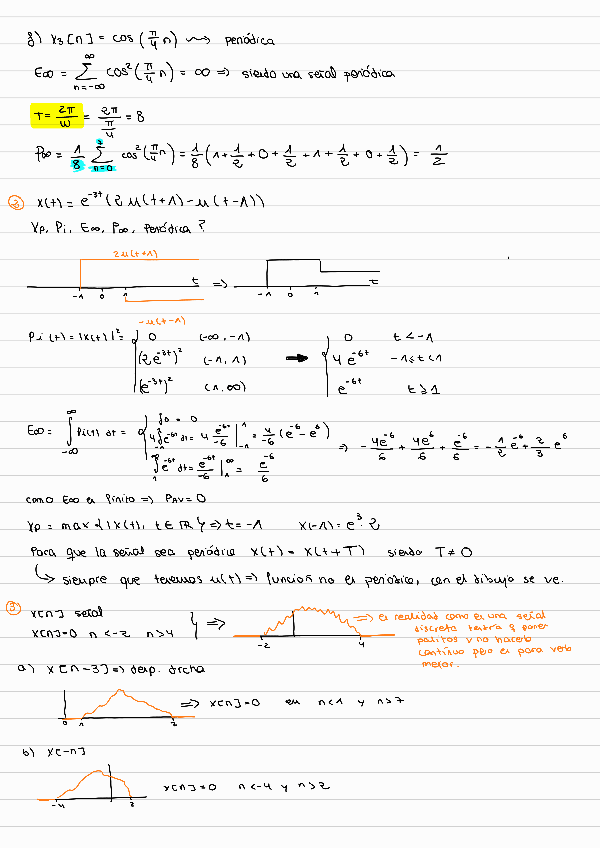 f) x₃[n] = cos(π/4 n) ⇝ periódica
E∞ = ∑_{n=-∞}^{∞} cos²(π/4 n) = ∞ ⇒ siendo una señal periódica
T = 2π/ω = 2π/(π/4) = 8
P∞ = 1/8 ∑_{n=0}^{7} cos²(π/4 n) = 1/8 (1 + 1/2 + 0 + 1/2 + 1 + 1/2 + 0 + 1/2) = 1/2
② x(t) = e^{-3t} (2 u(t+1) - u(t-1))
Vp, Pi, E∞, P∞, Periódica?
2u(t+1)
t ⇒ t
-1 0 1 -1 0 1
-u(t-1)
Pi(t) = |x(t)|² = { 0 (-∞, -1) → { 0 t < -1
(2e^{-3t})² (-1, 1) 4e^{-6t} -1 ≤ t < 1
(e^{-3t})² (1, ∞) e^{-6t} t ≥ 1
E∞ = ∫_{-∞}^{∞} Pi(t) dt = { ∫0 = 0
4∫_{-1}^{1} e^{-6t} dt = 4 e^{-6t}/-6 |_{-1}^{1} = 4/-6 (e^{-6} - e^{6}) ⇒ -4e^{-6}/6 + 4e^{6}/6 + e^{-6}/6 = -1/2 e^{-6} + 2/3 e^{6}
∫_{1}^{∞} e^{-6t} dt = e^{-6t}/-6 |_{1}^{∞} = e^{-6}/6
como E∞ es finito ⇒ PAV = 0
Vp = max {|x(t)|, t ∈ ℝ} ⇒ t = -1 x(-1) = e³ · 2
Para que la señal sea periódica x(t) = x(t+T) siendo T ≠ 0
↳ siempre que tenemos u(t) ⇒ funcion no es periodica, con el dibujo se ve.
③ x[n] señal
x[n]=0 n<-2 n>4 } ⇒
-2 4
⇒ en realidad como es una señal
discreta tendría q poner
palitos y no hacerlo
continuo pero es para verlo
mejor.
a) x[n-3] ⇒ desp. drcha
0 1 7
⇒ x[n]=0 en n<1 y n>7
b) x[-n]
-4 2
x[n]=0 n<-4 y n>2